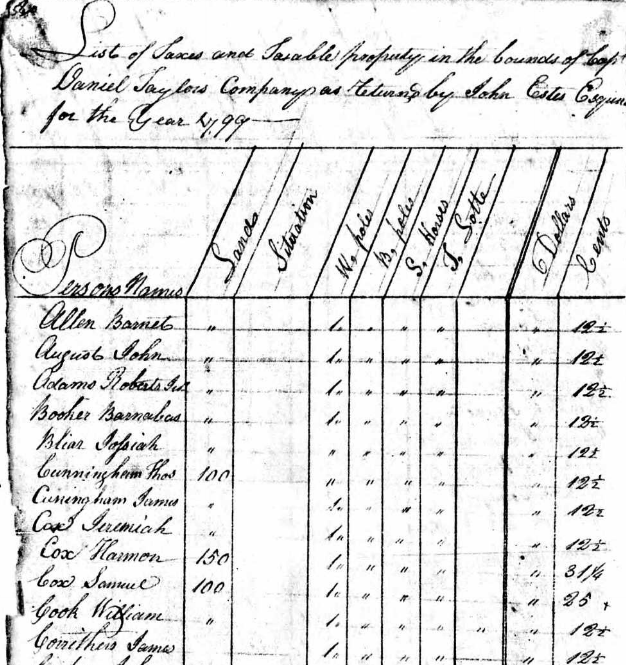 List of Taxes and Taxable property in the bounds of Capt
Daniel Taylors Company as Returnd by John Estes Esquire
for the Year 1799
Persons Names Lands Situation W. poles B. poles S. Horses T. Lotts Dollars Cents
Allen Barnet " 1 " " " " " 12½
August John " 1 " " " " 12½
Adams Roberts 1 " " " " 12½
Booker Barnabas " 1 " " " " 12½
Bliar Josiah " " " " " " 12½
Cunningham Thos 100 " " " " " 12½
Cuningham James " 1 " " " " 12½
Cox Jeremiah " 1 " " " " 12½
Cox Harmon 150 1 " " " " 31¼
Cox Samuel 100 1 " " " " 25
Cook William " 1 " " " " " 12½
Corrithers James 1 " " " " 12½